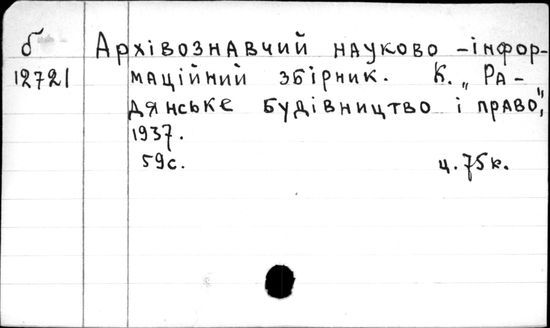 б Архівознавчий науково-інфор-
12721 маційний збірник. К. „Ра-
дянське будівництво і право",
1937.
59с. ц. 75к.